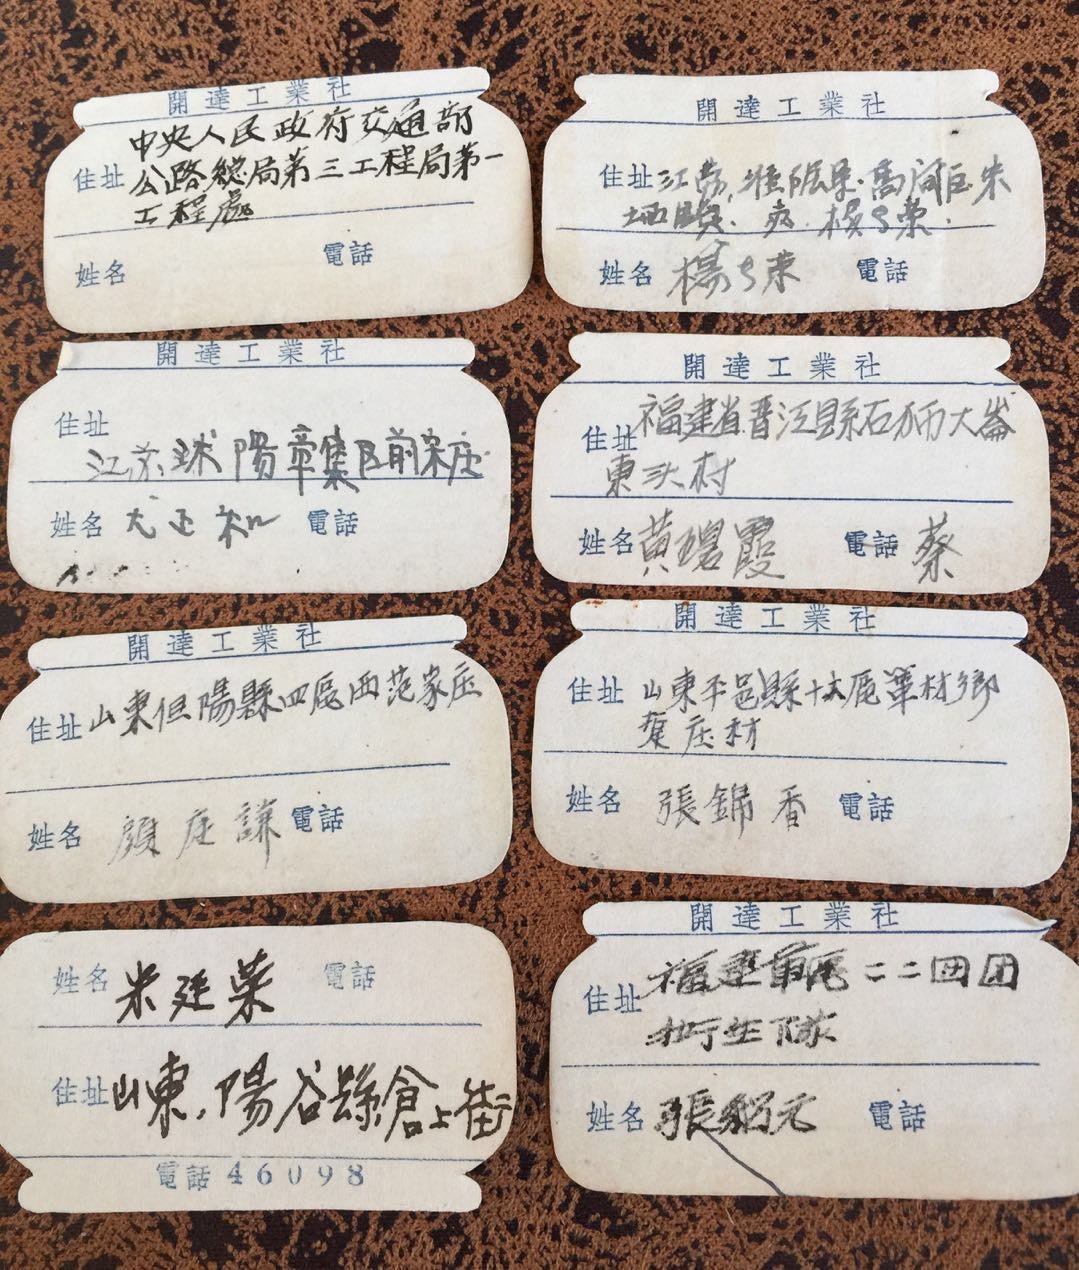 開達工業社
中央人民政府交通部
住址 公路總局第三工程局第一
工程處
姓名 電話
開達工業社
住址 江苏 高河区朱
姓名 楊 東 電話
開達工業社
住址
江苏 陽章集区前宋庄
姓名 尤正 電話
開達工業社
住址 福建省晋江縣石狮大崙
東头村
姓名 黄 霞 電話 蔡
開達工業社
住址 山東但陽縣四区西范家庄
姓名 顔庄謙 電話
開達工業社
住址 山東平邑縣十六区 村鄉
庄村
姓名 張錦香 電話
姓名 米廷荣 電話
住址 山東,陽谷縣倉上街
電話46098
開達工業社
住址 福建軍区二二四团
衛生队
姓名 張紹元 電話